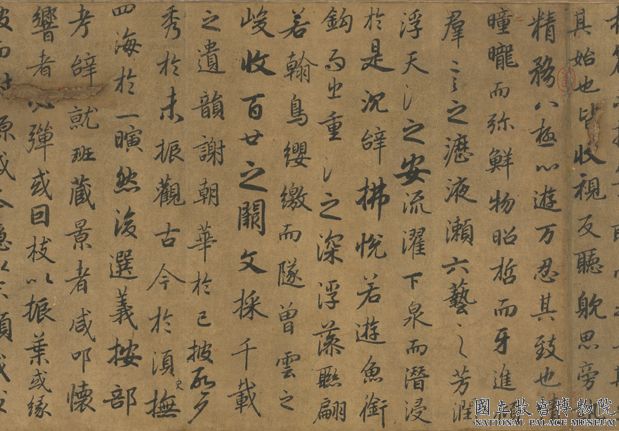 其始也皆收視反聽躭思旁
精務八極心遊万忍其致也
曈曨而弥鮮物昭晢而牙進
羣言之瀝液瀨六藝之芳潤
浮天淵之安流濯下泉而潛浸
於是沉辝拂悅若遊魚銜
鈎而出重淵之深浮藻聮翩
若翰鳥纓繳而隊曾雲之
峻收百世之闕文採千載
之遺韻謝朝華於已披啓夕
秀於未振觀古今於須臾撫
四海於一瞚然後選義按部
考辝就班藏景者咸叩懷
響者必彈或因枝以振葉或緣
國立故宮博物院
NATIONAL PALACE MUSEUM